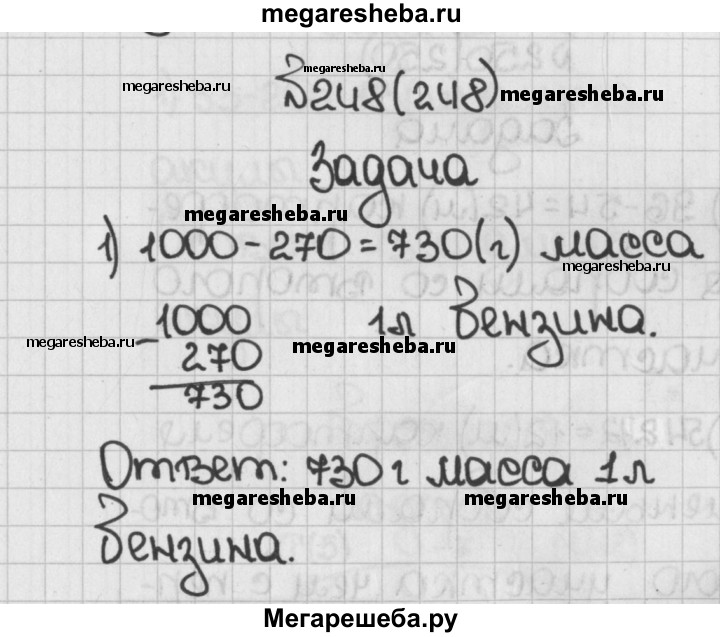 megaresheba.ru
№248(248)
megaresheba.ru
megaresheba.ru
megaresheba.ru
Задача
megaresheba.ru
1) 1000-270=730(г) масса
megaresheba.ru
1л бензина.
1000
- 270
730
megaresheba.ru
megaresheba.ru
Ответ: 730 г масса 1л
megaresheba.ru
megaresheba.ru
бензина.
Мегарешеба.ру